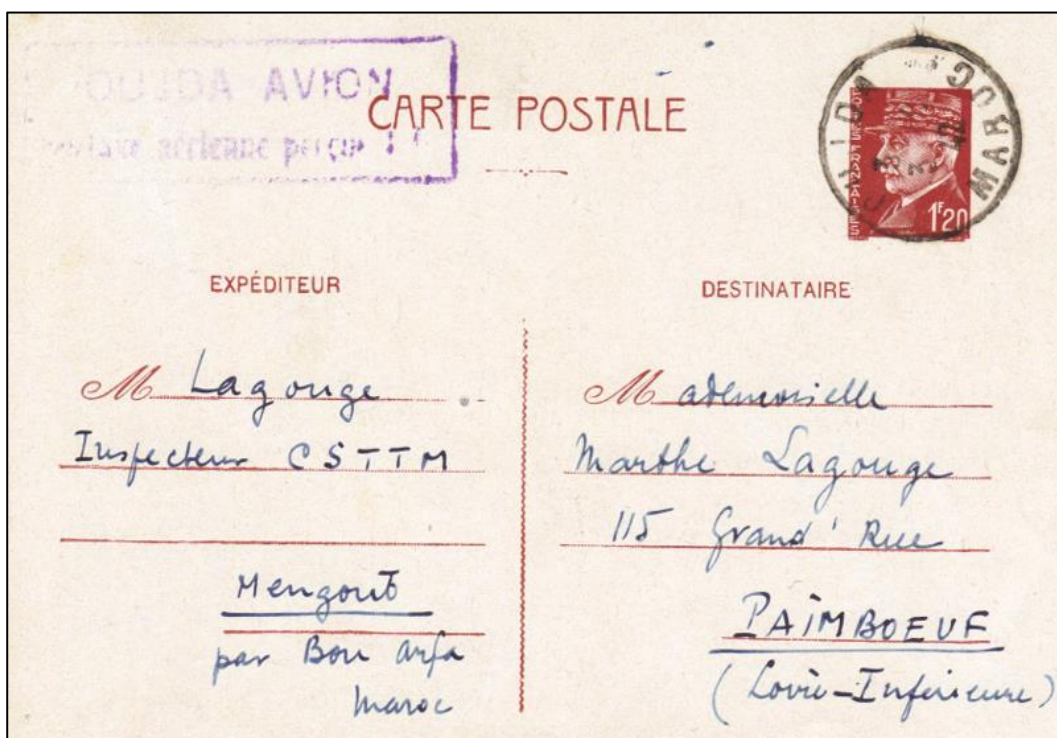 OUJDA AVION
taxe aérienne perçue
CARTE POSTALE
OUJDA MAROC
POSTES FRANÇAISES
1F20
EXPÉDITEUR
M Lagouge
Inspecteur CSTTM
Mengoub
par Bou Arfa
Maroc
DESTINATAIRE
Mademoiselle
Marthe Lagouge
115 Grand' Rue
PAIMBOEUF
(Loire-Inférieure)